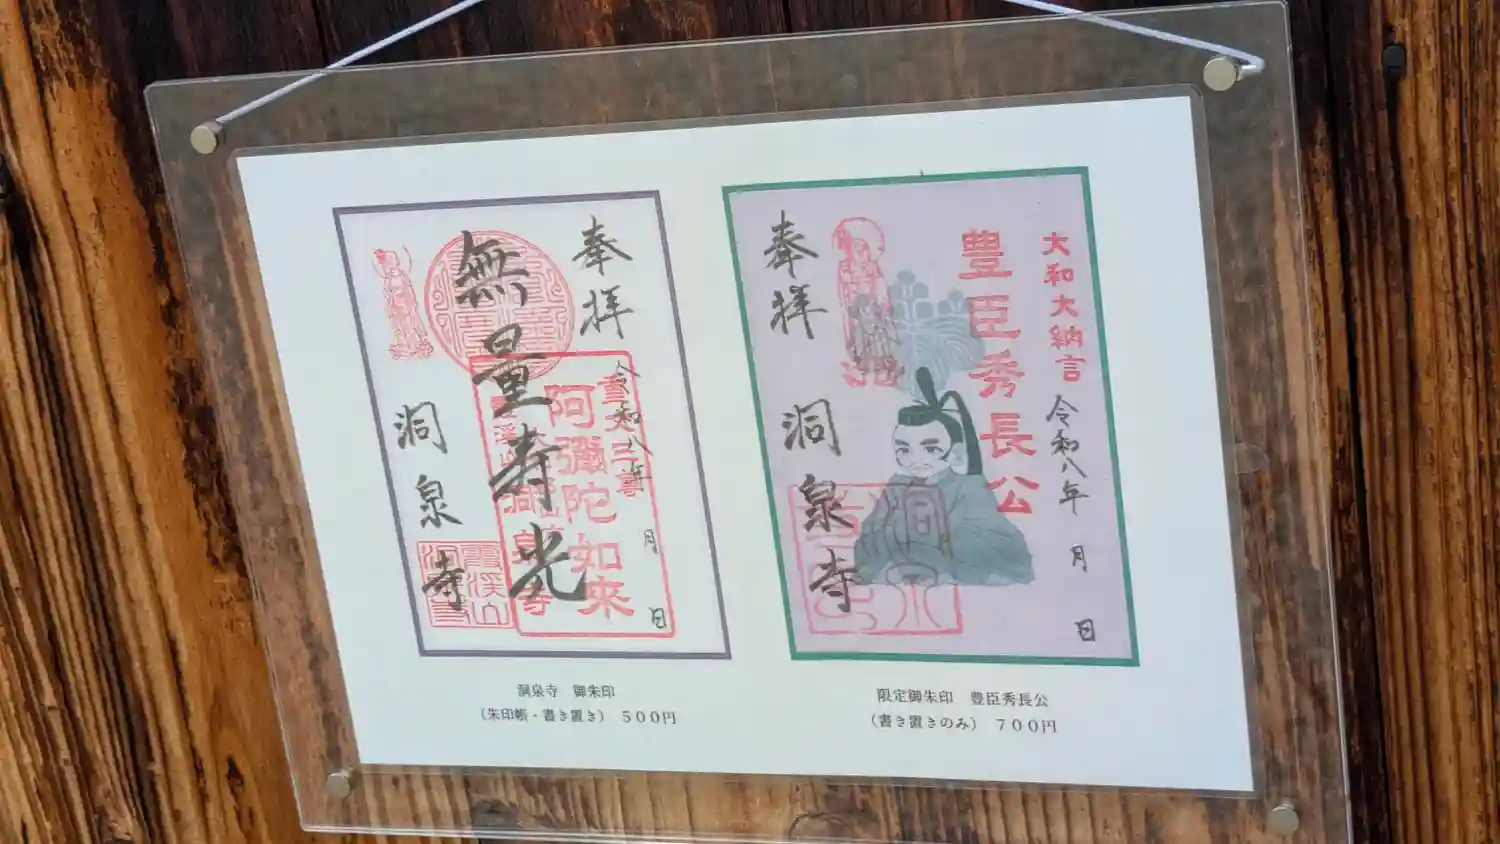 奉拝
令和八年 月 日
無量寿光
阿彌陀如來
洞泉寺
洞泉寺 御朱印
(朱印帳・書き置き) 500円
大和大納言
令和八年 月 日
豊臣秀長公
奉拝
洞泉寺
限定御朱印 豊臣秀長公
(書き置きのみ) 700円